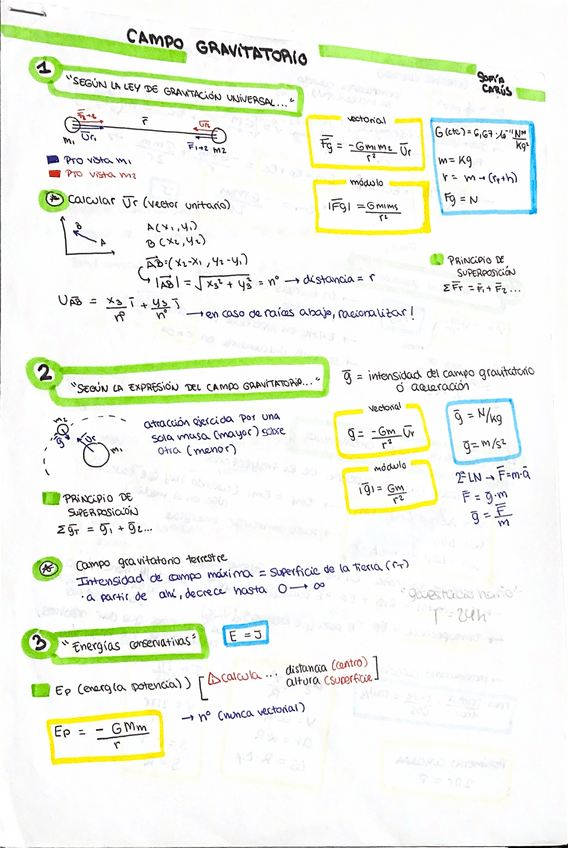 CAMPO GRAVITATORIO
SOFÍA
CARÚS
1
"SEGÚN LA LEY DE GRAVITACIÓN UNIVERSAL..."
F2→1
r̅
U̅r2
m1
U̅r1
F̅1→2
m2
Pto vista m1
Pto vista m2
vectorial
F̅g = -Gm1m2/r² U̅r
módulo
|F̅g| = Gm1m2/r²
G (cte) = 6,67·10⁻¹¹ Nm²/kg²
m = kg
r = m → (rT+h)
F̅g = N
Calcular U̅r (vector unitario)
B
A
A (x1, y1)
B (x2, y2)
A̅B̅ = (x2-x1, y2-y1)
|A̅B̅| = √x3² + y3² = nº → distancia = r
U A̅B̅ = x3/nº i̅ + y3/nº j̅
→ en caso de raíces abajo, racionalizar!
PRINCIPIO DE
SUPERPOSICIÓN
ΣF̅T = F̅1 + F̅2...
2
"SEGÚN LA EXPRESIÓN DEL CAMPO GRAVITATORIO..."
g̅ = intensidad del campo gravitatorio
ó aceleración
m2
g̅
U̅r
m1
atracción ejercida por una
sola masa (mayor) sobre
otra (menor)
vectorial
g̅ = -Gm/r² U̅r
módulo
|g̅| = Gm/r²
g̅ = N/kg
g̅ = m/s²
2ª LN → F̅ = m·a̅
F̅ = g̅·m
g̅ = F̅/m
PRINCIPIO DE
SUPERPOSICIÓN
Σg̅T = g̅1 + g̅2...
Campo gravitatorio terrestre
Intensidad de campo máxima = superficie de la Tierra (rT)
· a partir de ahí, decrece hasta 0 → ∞
3
"Energías conservativas"
E = J
Ep (energía potencia))
[ calcula... distancia (centro)
altura (superficie) ]
Ep = - GMm/r
→ nº (nunca vectorial)